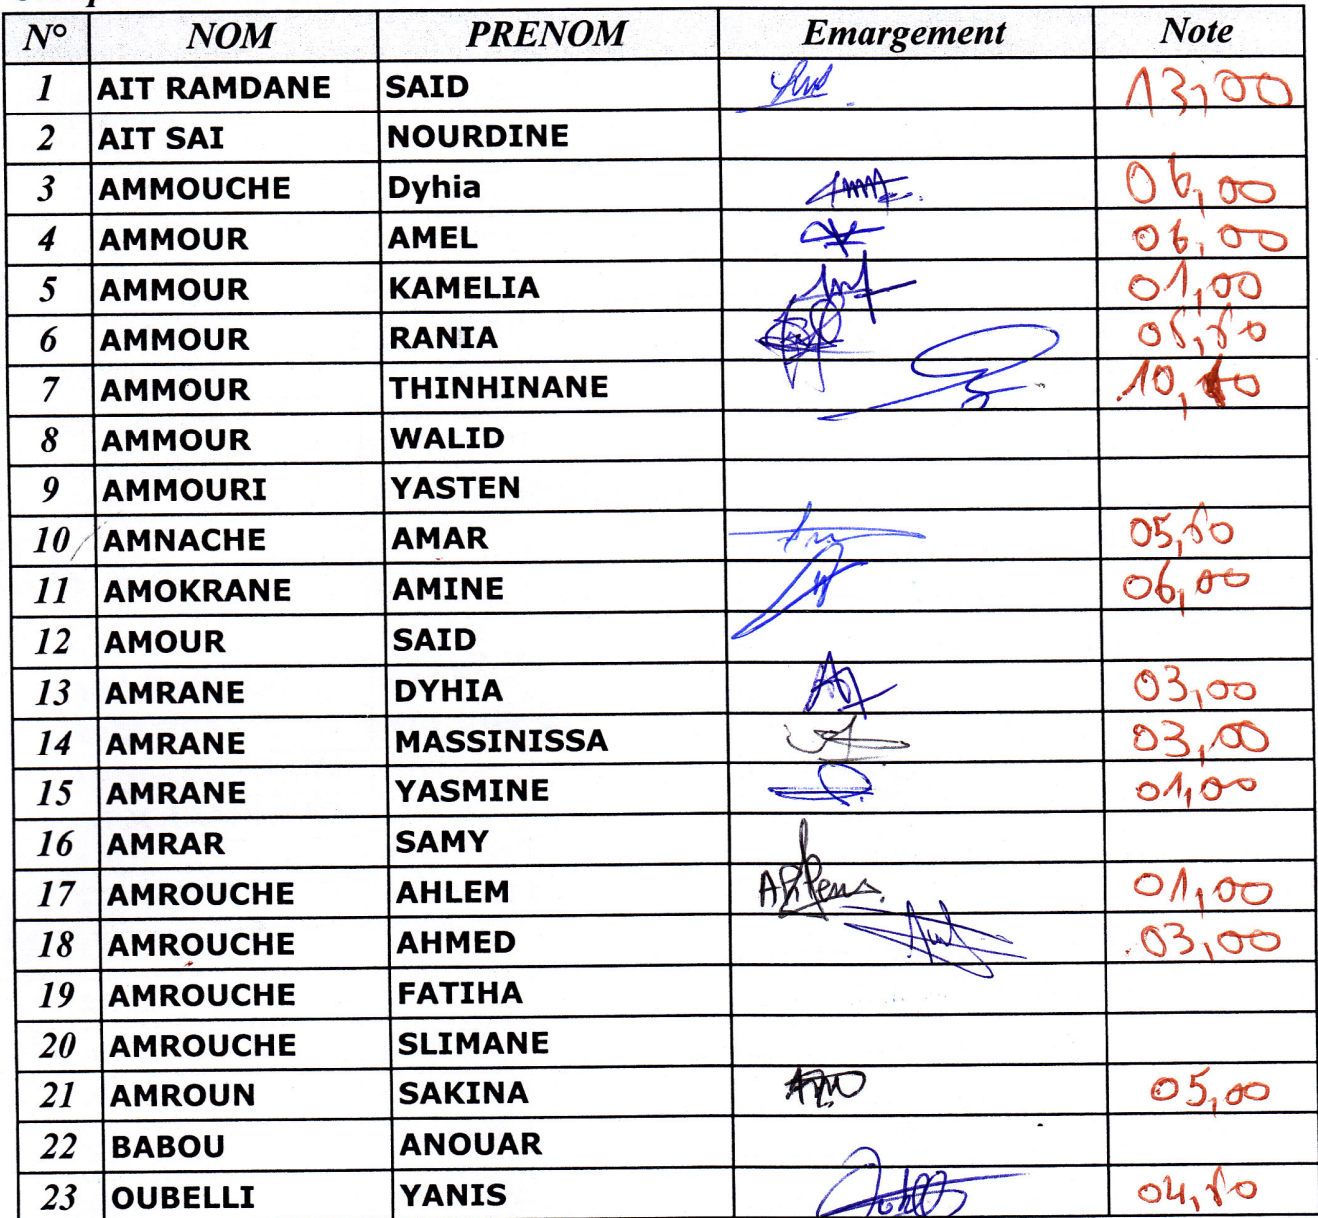 N° NOM PRENOM Emargement Note
1 AIT RAMDANE SAID 13,00
2 AIT SAI NOURDINE
3 AMMOUCHE Dyhia 06,00
4 AMMOUR AMEL 06,00
5 AMMOUR KAMELIA 01,00
6 AMMOUR RANIA 05,50
7 AMMOUR THINHINANE
8 AMMOUR WALID
9 AMMOURI YASTEN
10 AMNACHE AMAR 05,50
11 AMOKRANE AMINE 06,00
12 AMOUR SAID
13 AMRANE DYHIA 03,00
14 AMRANE MASSINISSA 03,00
15 AMRANE YASMINE 01,00
16 AMRAR SAMY
17 AMROUCHE AHLEM Ahlem 01,00
18 AMROUCHE AHMED 03,00
19 AMROUCHE FATIHA
20 AMROUCHE SLIMANE
21 AMROUN SAKINA 05,00
22 BABOU ANOUAR
23 OUBELLI YANIS 04,50